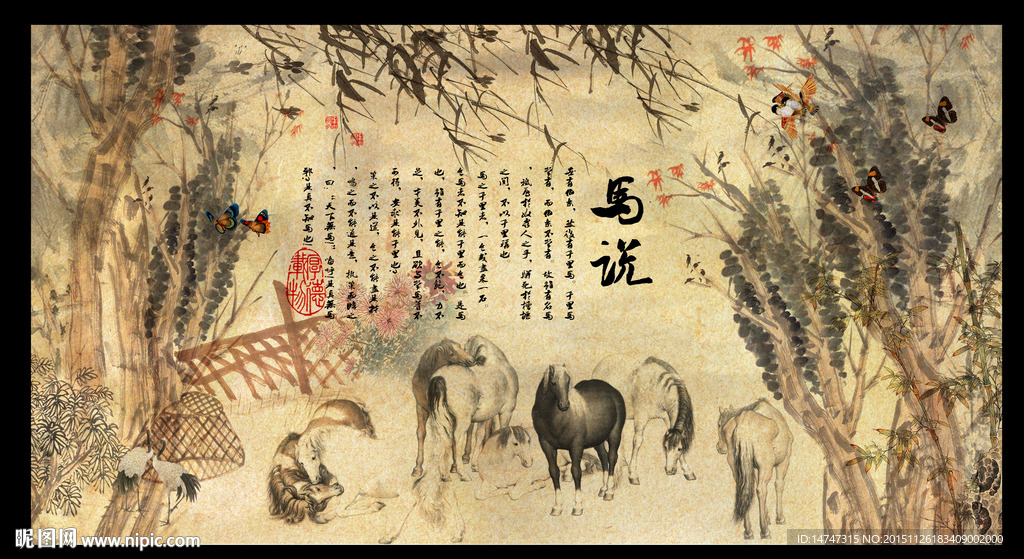 马说
世有伯乐，然后有千里马。千里马
常有，而伯乐不常有。故虽有名马
，祇辱於奴隶人之手，骈死於槽枥
之间，不以千里称也
马之千里者，一食或尽粟一石。
食马者不知其能千里而食也。是马
也，虽有千里之能，食不饱，力不
足，才美不外见，且欲与常马等不
可得，安求其能千里也？
策之不以其道，食之不能尽其材
，鸣之而不能通其意，执策而临之
，曰：“天下无马！”呜呼！其真无马
邪？其真不知马也！
厚德載物
昵图网 www.nipic.com
ID:14747315 NO:20151126183409002000